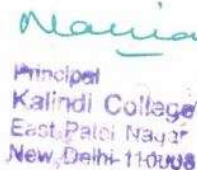 Principal
Kalindi College
East Patel Nagar
New Delhi-110008